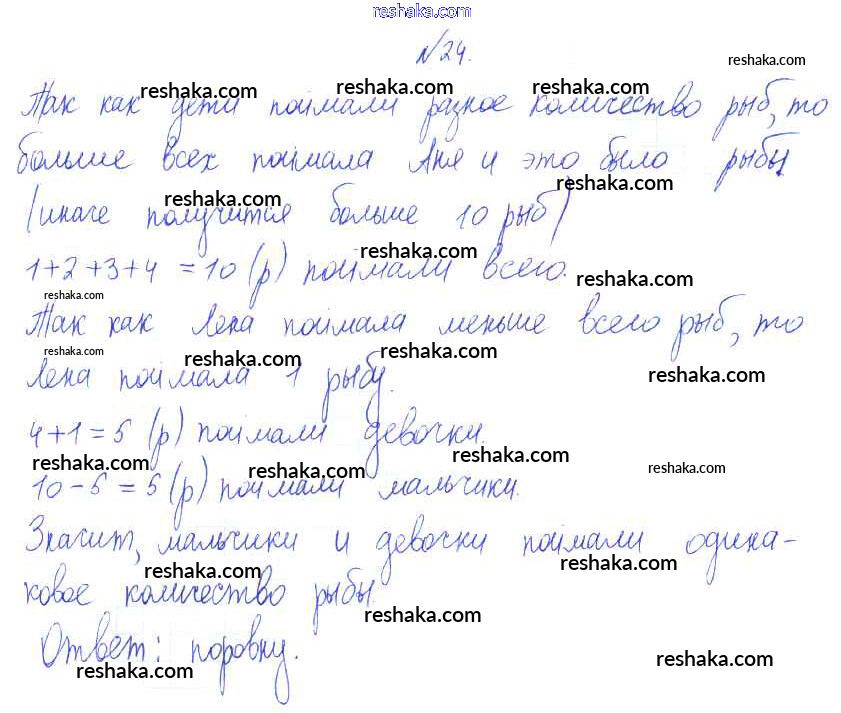 reshaka.com
№24.
reshaka.com
Так как дети поймали разное количество рыб, то
reshaka.com reshaka.com reshaka.com
больше всех поймала Аня и это было рыбы
reshaka.com reshaka.com
(иначе получится больше 10 рыб)
1+2+3+4 = 10 (р) поймали всего.
reshaka.com reshaka.com
reshaka.com
Так как Лена поймала меньше всего рыб, то
reshaka.com reshaka.com reshaka.com
Лена поймала 1 рыбу.
reshaka.com
4+1=5 (р) поймали девочки.
reshaka.com reshaka.com reshaka.com reshaka.com
10-5=5 (р) поймали мальчики.
Значит, мальчики и девочки поймали одина-
reshaka.com reshaka.com
ковое количество рыбы.
reshaka.com
Ответ: поровну.
reshaka.com reshaka.com